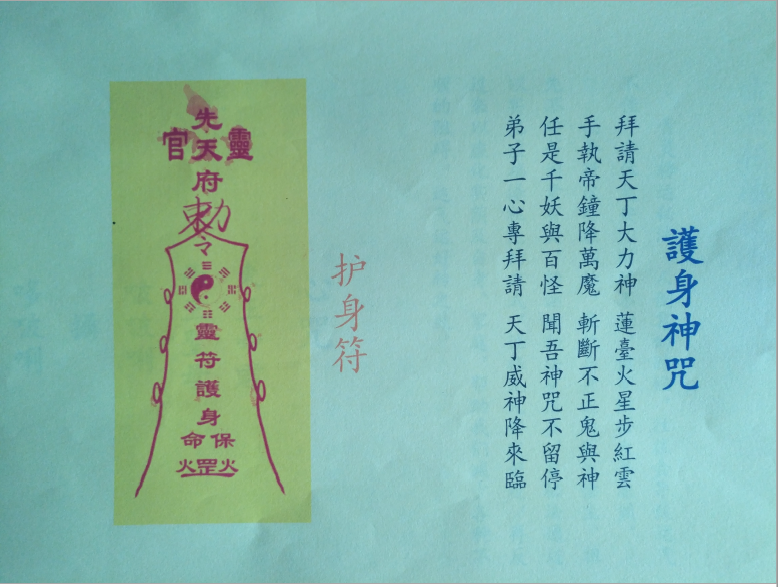 護身神咒
拜請天丁大力神 蓮臺火星步紅雲
手執帝鐘降萬魔 斬斷不正鬼與神
任是千妖與百怪 聞吾神咒不留停
弟子一心專拜請 天丁威神降來臨
护身符
先天府
靈官
敕令
靈符護身
保命
火罡火